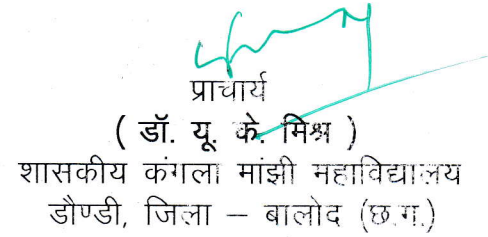 प्राचार्य
( डॉ. यू. के. मिश्र )
शासकीय कंगला मांझी महाविद्यालय
डौण्डी, जिला – बालोद (छ.ग.)